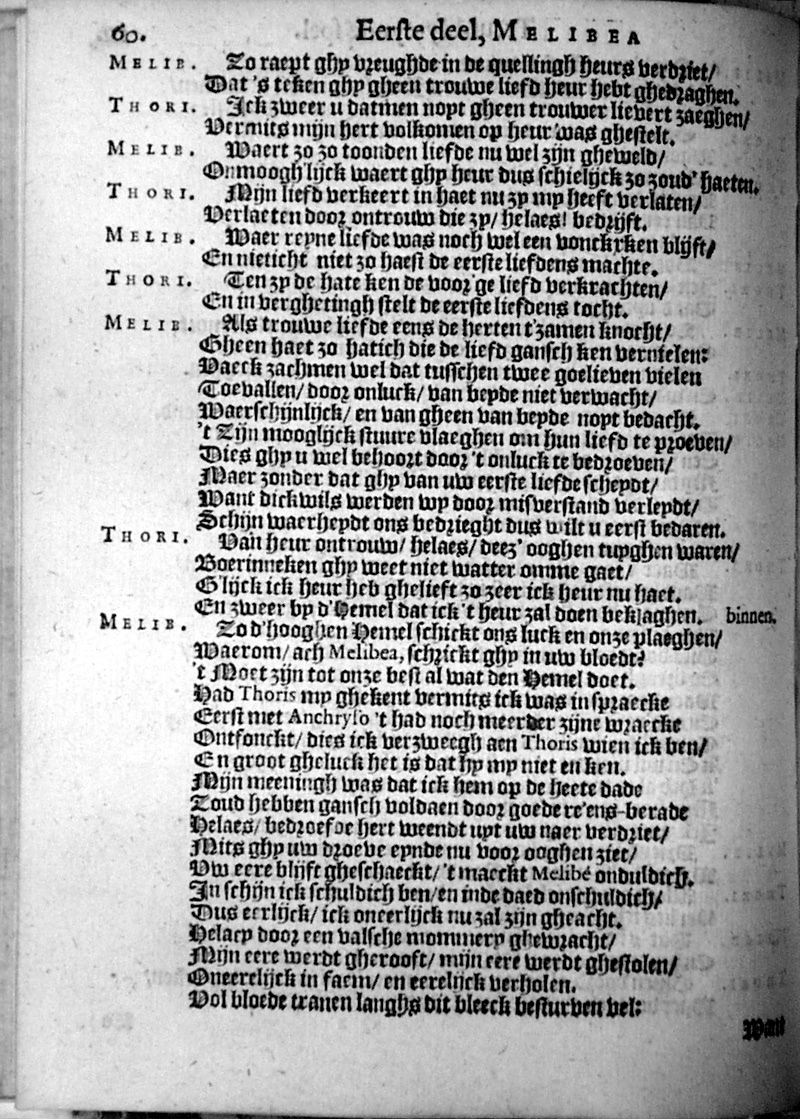 60. Eerste deel, MELIBEA
MELIB. Zo raept ghy vreughde in de quellingh heurs verdriet/
Dat 's teken ghy gheen trouwe liefd heur hebt ghedraghen.
THORI. Ick zweer u datmen noyt gheen trouwer lievert zaeghen/
Vermits mijn hert volkomen op heur was ghestelt.
MELIB. Waert zo zo toonden liefde nu wel zijn gheweld/
Onmoogh'lijck waert ghy heur dus schielijck zo zoud' haeten.
THORI. Mijn liefd verkeert in haet nu zy my heeft verlaten/
Verlaeten door ontrouw die zy/ helaes! bedrijft.
MELIB. Waer reyne liefde was noch wel een vonckxken blijft/
En nieticht niet zo haest de eerste liefdens machte.
THORI. Ten zy de hate ken de voor'ge liefd verkrachten/
En in verghetingh stelt de eerste liefdens tocht.
MELIB. Als trouwe liefde eens de herten t'zamen knocht/
Gheen haet zo hatich die de liefd gansch ken vernielen:
Vaeck zachmen wel dat tusschen twee goelieven vielen
Toevallen/ door onluck/ van beyde niet verwacht/
Waerschijnlijck/ en van gheen van beyde noyt bedacht.
't Zijn mooglijck stuure vlaeghen om hun liefd te proeven/
Dies ghy u wel behoort door 't onluck te bedroeven/
Maer zonder dat ghy van uw eerste liefde scheydt/
Want dickwils werden wy door misverstand verleydt/
Schijn waerheydt ons bedrieght dus wilt u eerst bedaren.
THORI. Van heur ontrouw/ helaes/ deez' ooghen tuyghen waren/
Boerinneken ghy weet niet watter omme gaet/
G'lijck ick heur heb ghelieft zo zeer ick heur nu haet.
En zweer by d'Hemel dat ick 't heur zal doen beklaghen. binnen.
MELIB. Zo d'hooghen Hemel schickt ons luck en onze plaeghen/
Waerom/ ach Melibea, schrickt ghy in uw bloedt?
't Moet zijn tot onze best al wat den Hemel doet.
Had Thoris my ghekent vermits ick was in spraecke
Eerst met Anchryso 't had noch meerder zijne wraecke
Ontfonckt/ dies ick verzweegh aen Thoris wien ick ben/
En groot gheluck het is dat hy my niet en ken.
Mijn meeningh was dat ick hem op de heete dade
Zoud hebben gansch voldaen door goede re'ens-berade
Helaes/ bedroefde hert weendt uyt uw naer verdriet/
Mits ghy uw droeve eynde nu voor ooghen ziet/
Uw eere blijft gheschaeckt/ 't maeckt Melibé onduldich.
In schijn ick schuldich ben/ en inde daed onschuldich/
Dus eerlijck/ ick oneerlijck nu zal zijn gheacht.
Helaey door een valsche mommery ghewracht/
Mijn eere werdt gherooft/ mijn eere werdt ghestolen/
Oneerelijck in faem/ en eerelijck verholen.
Vol bloede tranen langhs dit bleeck besturven vel:
Want